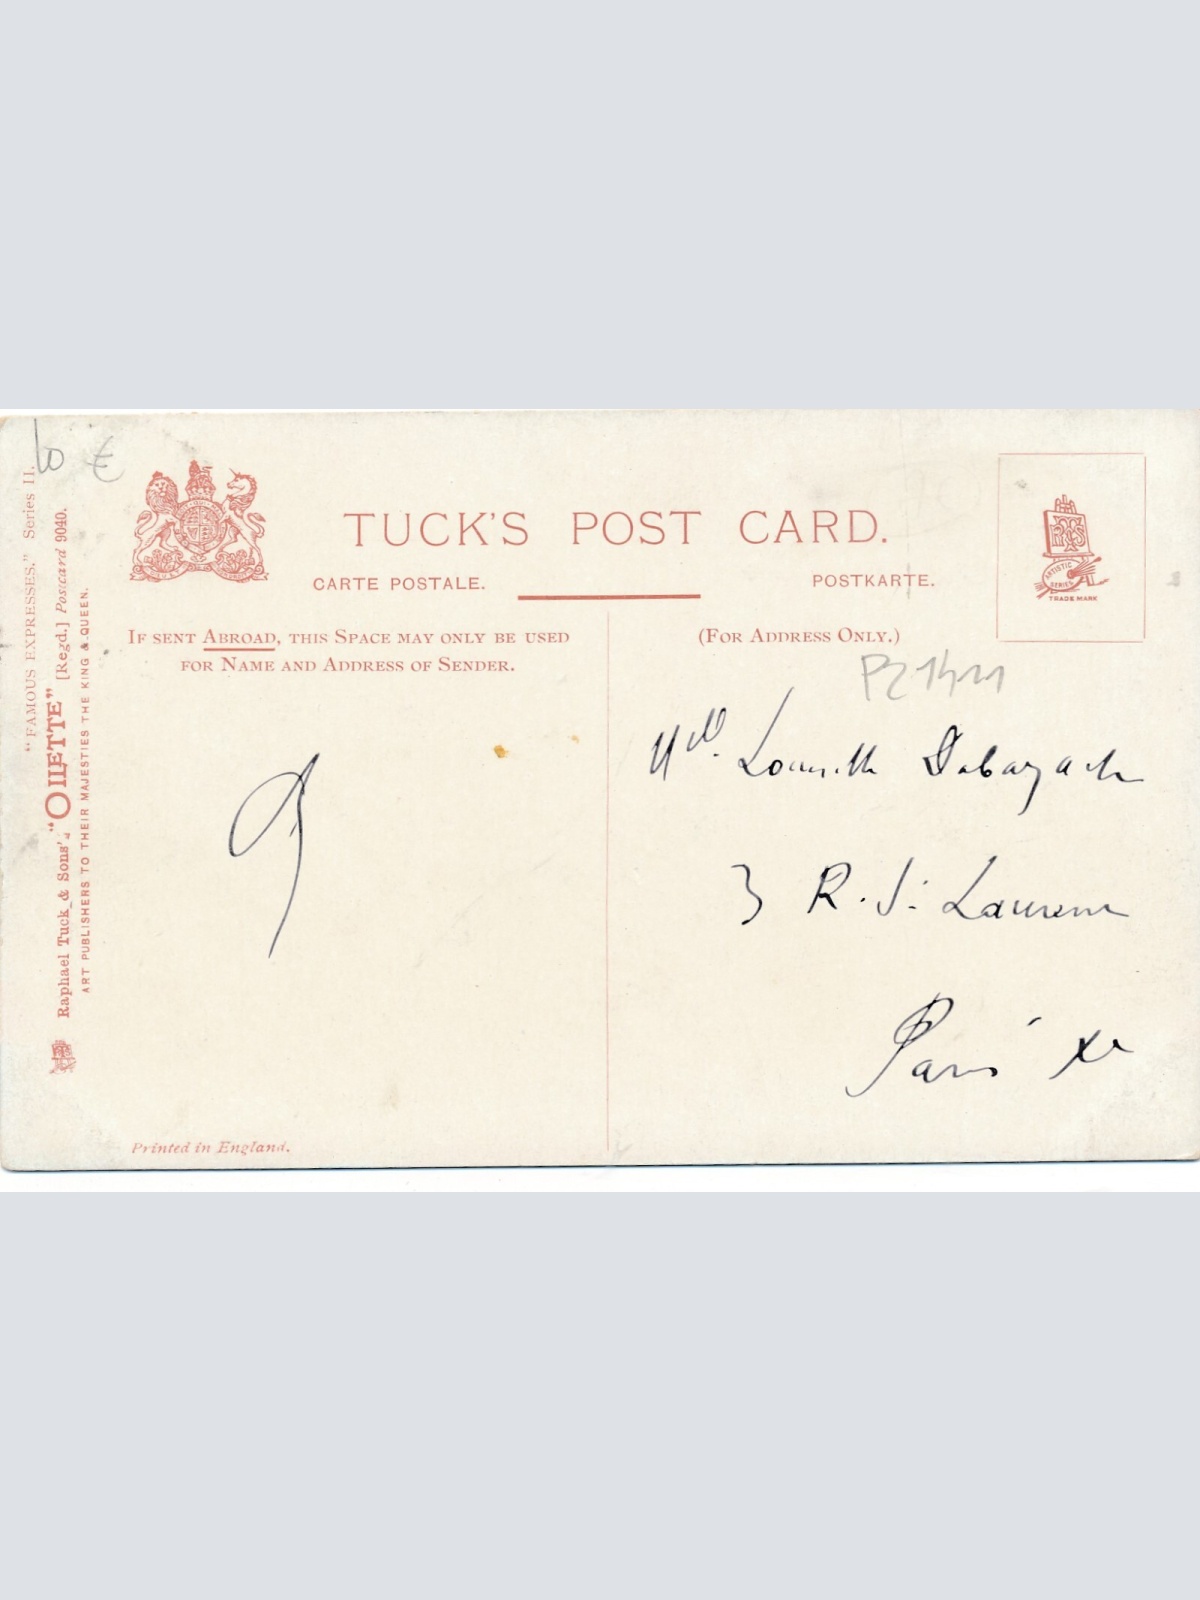 10 €
TUCK'S POST CARD.
CARTE POSTALE.
POSTKARTE.
IF SENT ABROAD, THIS SPACE MAY ONLY BE USED
FOR NAME AND ADDRESS OF SENDER.
(FOR ADDRESS ONLY.)
ARTISTIC
SERIES
TRADE MARK
"FAMOUS EXPRESSES." Series II.
Raphael Tuck & Sons' "OILETTE" [Regd.] Postcard 9040.
ART PUBLISHERS TO THEIR MAJESTIES THE KING & QUEEN.
Mlle.
3 R. St Laurent
Paris Xe
Printed in England.